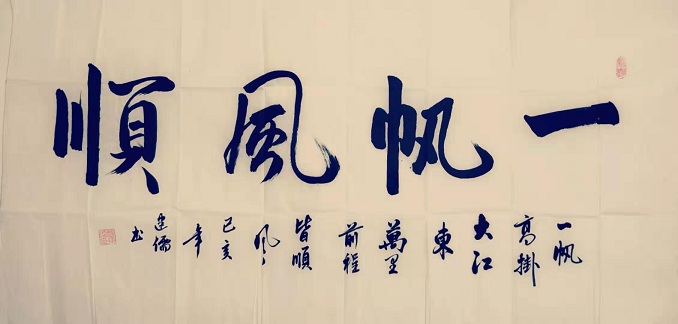 一帆風順
一帆
高掛
大江
東
萬里
前程
皆順
風
己亥
年
建儒
书